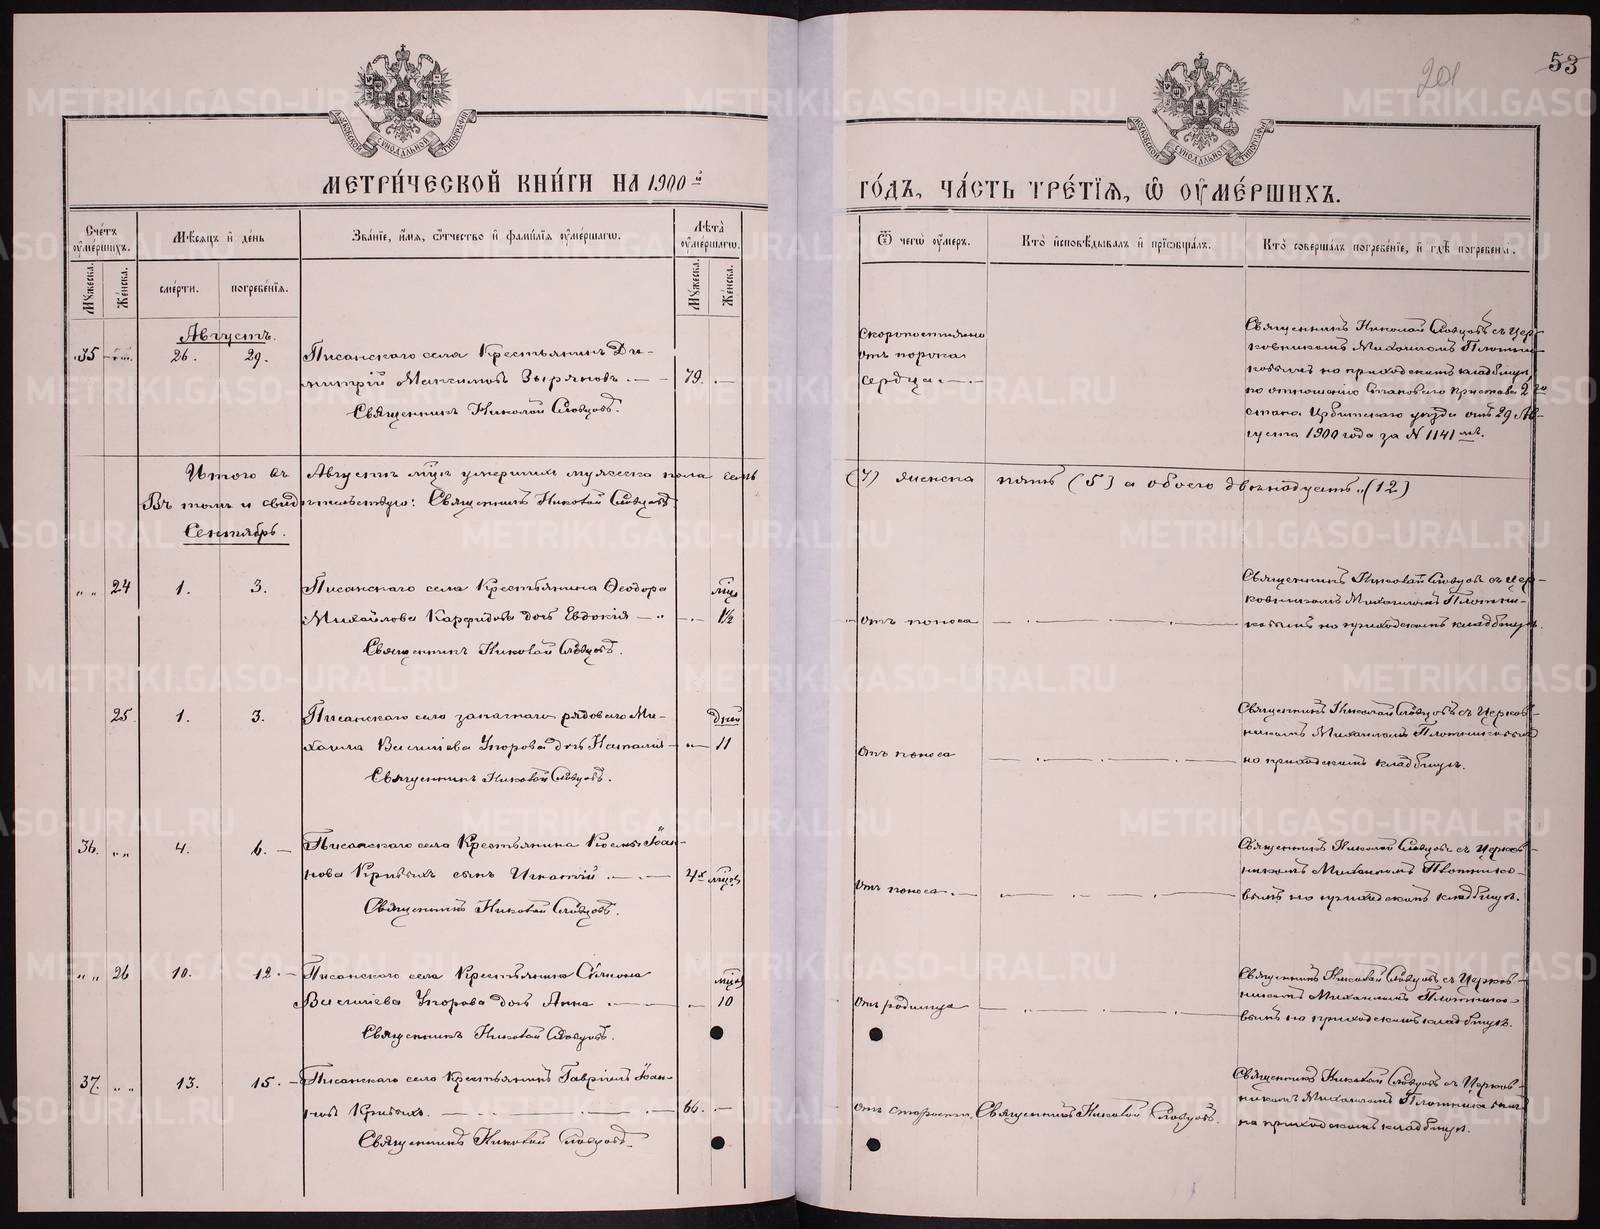 53
201
МОСКОВСКОЙ СѴНОДАЛЬНОЙ ТИПОГРАФІИ
МОСКОВСКОЙ СѴНОДАЛЬНОЙ ТИПОГРАФІИ
МЕТРИ́ЧЕСКОЙ КНИ́ГИ НА 1900 й
ГО́ДЪ, ЧА́СТЬ ТРЕ́ТІЯ, Ѡ ОУМЕ́РШИХЪ.
Сче́тъ оуме́ршихъ.
Мѣ́сяцъ и де́нь
Зва́ніе, и́мя, о́тчество и фами́лія оуме́ршагѡ.
Лѣ́та оуме́ршагѡ.
Ѿ чегѡ̀ оу́меръ.
Кто̀ исповѣ́дывалъ и пріѡбща́лъ.
Кто̀ соверша́лъ погребе́ніе, и гдѣ̀ погребены̀.
Мꙋ́жеска.
Же́нска.
сме́рти.
погребе́нія.
Мꙋ́жеска.
Же́нска.
Августъ.
35 26. 29. Писанскаго села Крестьянинъ Ди-
митрій Максимовъ Зыряновъ. — 79. —
Священникъ Николай Словцовъ.
Скоропостижно
отъ порока
сердца. —
Священникъ Николай Словцовъ съ Цер-
ковникомъ Михаиломъ Плотни-
ковымъ на приходскомъ кладбищѣ,
по отношенію Становаго Пристава 2го
стана Ирбитскаго уѣзда отъ 29 Ав-
густа 1900 года за N 1141 мъ.
Итого въ Августѣ мцѣ умершихъ мужеска пола семь (7) женска пять (5) а обоего двѣнадцать „(12)
Въ томъ и свидѣтельствую: Священникъ Николай Словцовъ.
Сентябрь.
„ „ 24 1. 3. Писанскаго села Крестьянина Ѳеодора мца
Михайлова Карфидова дочь Евдокія — „ — 1½
Священникъ Николай Словцовъ.
отъ поноса
Священникъ Николай Словцовъ съ Цер-
ковникомъ Михаиломъ Плотни-
ковымъ на приходскомъ кладбищѣ.
25 1. 3. Писанскаго села запаснаго рядоваго Ми- дней
хаила Василіева Упорова дочь Наталія — „ — 11
Священникъ Николай Словцовъ.
отъ поноса
Священникъ Николай Словцовъ съ Церков-
никомъ Михаиломъ Плотниковымъ
на приходскомъ кладбищѣ.
36. „ „ 4. 6. — Писанскаго села Крестьянина Космы Іоан-
нова Кривыхъ сынъ Игнатій — 4х мцовъ
Священникъ Николай Словцовъ.
отъ поноса. —
Священникъ Николай Словцовъ съ Церков-
никомъ Михаиломъ Плотнико-
вымъ на приходскомъ кладбищѣ.
„ „ 26 10. 12. — Писанскаго села Крестьянина Сѵмеона мцовъ
Василіева Упорова дочь Анна — 10
Священникъ Николай Словцовъ.
отъ родимца
Священникъ Николай Словцовъ съ Церков-
никомъ Михаиломъ Плотнико-
вымъ на приходскомъ кладбищѣ.
37. „ „ 13. 15. — Писанскаго села Крестьянинъ Гавріилъ Іоан-
новъ Кривыхъ. — 66. —
Священникъ Николай Словцовъ.
отъ старости. Священникъ Николай Словцовъ.
Священникъ Николай Словцовъ съ Церков-
никомъ Михаиломъ Плотниковымъ
на приходскомъ кладбищѣ.
METRIKI.GASO-URAL.RU